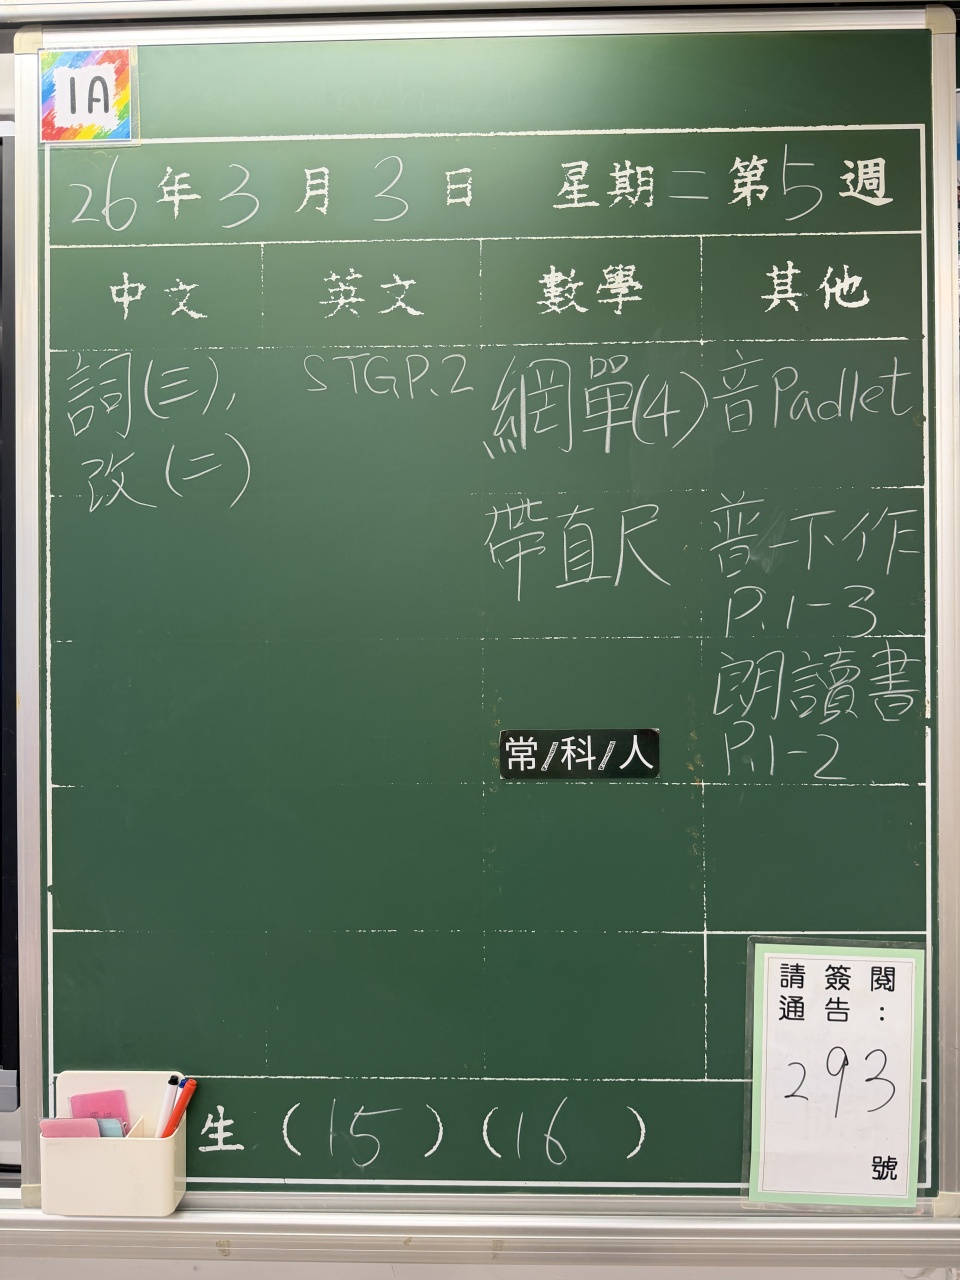 1A
26年3月3日 星期二第5週
中文 英文 數學 其他
詞(三),
改(二)
STGP.2
網單(4)
帶直尺
常/科/人
音Padlet
普一下作
P.1-3
朗讀書
P.1-2
請簽閱
通告:
293
號
生(15)(16)